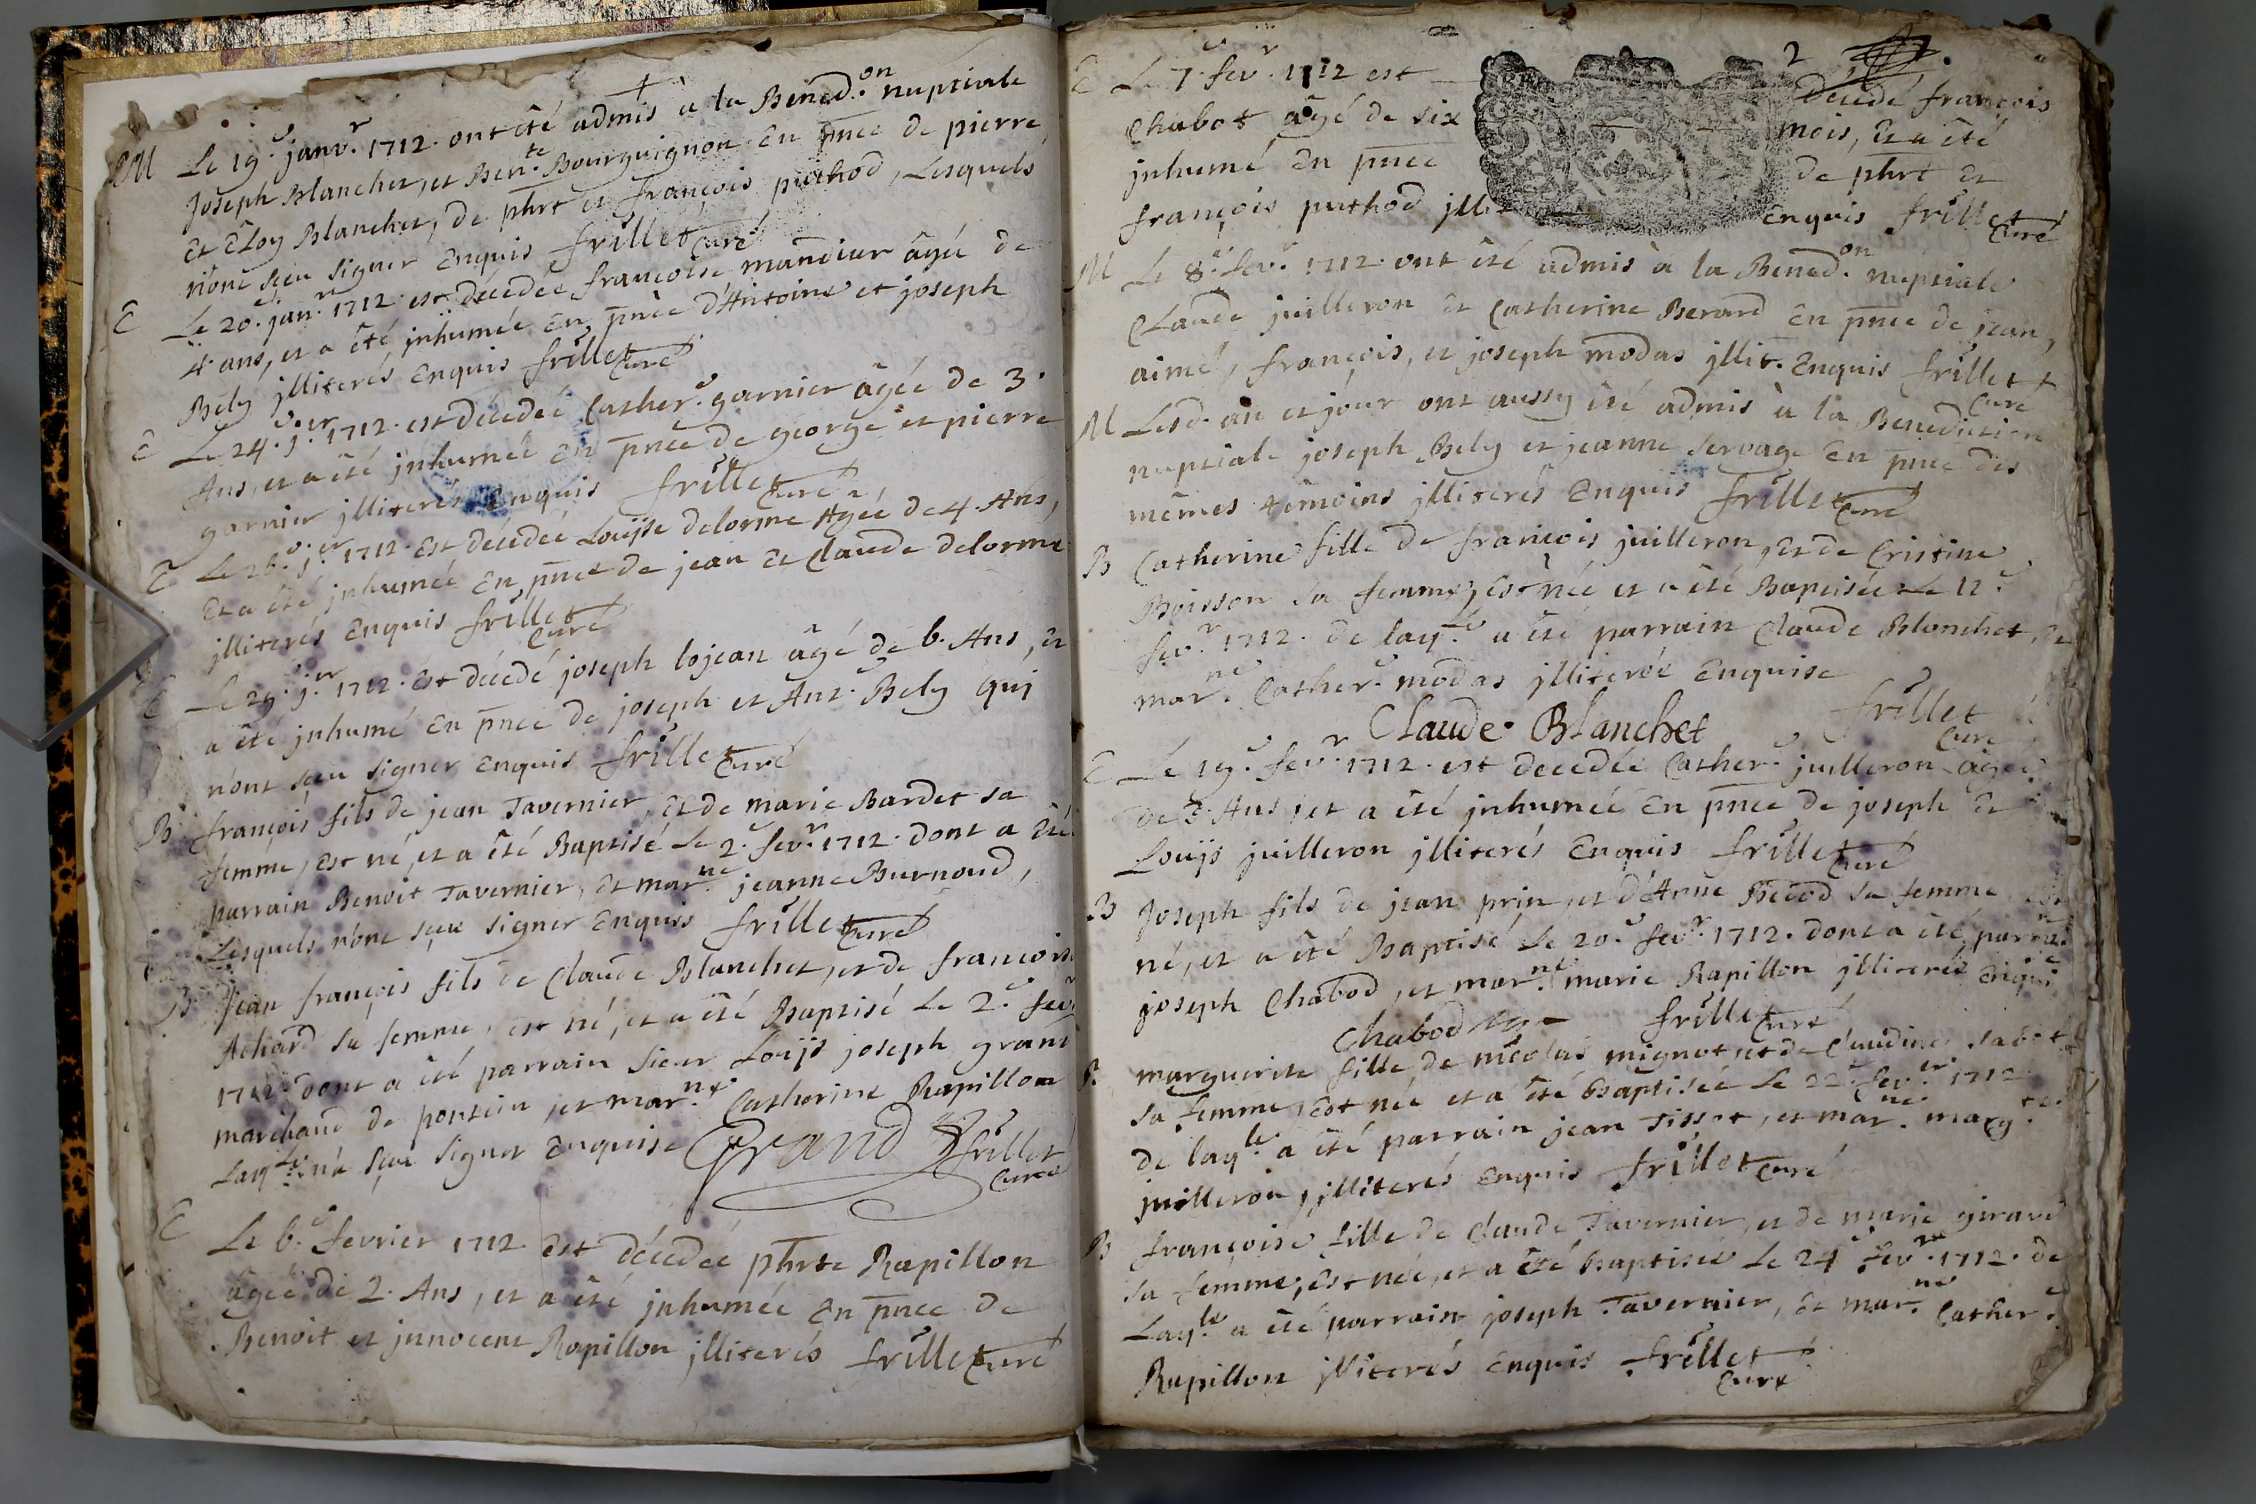 M Le 19.e janv.r 1712. ont été admis à la Bened.on nuptiale
joseph Blanchet, et Ben.te Bourguignon En pnce de pierre
et Eloy Blanchet, de phrt et françois puthod, Lesquels
n'ont sçeu signer Enquis frillet Curé
E Le 20.e jan.r 1712. est décedée francoise mandiar âgée de
4. ans, et a été jnhumée En pnce d'Antoine et joseph
Bely jlliterés Enquis frillet Curé
E Le 24.e j.er 1712. est décedeé Cather.e garnier âgée de 3.
Ans, et a été jnhumeé En pnce de george et pierre
garnier jlliterés Enquis frillet Curé
E Le 26.e j.er 1712. Est décedeé Louïse delorme Agée de 4. Ans,
Et a été jnhumeé En pnce de jean et Claude delorme
jlliterés Enquis frillet Curé
E Le 29.e j.er 1712. Est décedé joseph lojean âgé de 6. Ans, et
a été jnhumé En pnce de joseph et Ant.e Bely quj
n'ont sçeu signer Enquis frillet Curé
B françois fils de jean Tavernier, et de marie Bardet sa
femme, est né, et a été Baptisé Le 2.e fev.r 1712. dont a été
parrain Benoit Tavernier, et mar.ne jeanne Burnoud,
Lesquels n'ont sçeu signer Enquis frillet Curé
B jean françois fils de Claude Blanchet, et de françoise
Achard sa femme, est né, et a été Baptisé Le 2.e fev.r
1712. dont a été parrain sieur Loüjs joseph grand
marchand de poncin, et mar.ne Catherine Rapillon
Laq.le n'a sçeu signer Enquise Grand frillet
Curé
E Le 6.e fevrier 1712 est décedeé phrte Rapillon
âgée de 2. Ans, et a été jnhumeé En pnce de
Benoit et jnnocent Rapillon jlliterés frillet Curé
2
E Le 7.e fev.r 1712 est decedé françois
Chabot âgé de six mois, Et a été
jnhumé En pnce de phrt et
françois puthod jllit Enquis frillet
Curé
M Le 8.e fev.r 1712. ont été admis à la Bened.on nuptiale
Claude juilleron et Catherine Berard En pnce de jean,
aimé, françois, et joseph modas jllit. Enquis frillet
Curé
M Lesd. an et jour ont aussy été admis à la Benediction
nuptiale joseph Bely et jeanne servage En pnce des
mêmes témoins jlliterés Enquis frillet Curé
B Catherine fille de françois juilleron, et de Cristine
Boisson sa femme, est née et a été Baptisée Le 12.e
fev.r 1712. de laq.le a été parrain Claude Blanchet, et
mar.ne Cather.e modas jlliterée Enquise
Claude Blanchet frillet
Curé
E Le 19.e fev.r 1712. est decedée Cather.e juilleron âgée
de 3. Ans, et a été jnhumeé En pnce de joseph et
Louijs juilleron jlliterés Enquis frillet Curé
B Joseph fils de jean prin, et d'Anne Becod sa femme, est
né, et a été Baptisé Le 20.e fev.r 1712. dont a été parrain
joseph Chabod, et mar.ne marie Rapillon jlliterée Enquise
Chabod frillet Curé
B marguerite fille de nicolas mignot, et de Claudine sabot
sa femme, Est née et a été Baptiseé Le 22.e fev.er 1712
de laq.le a été parrain jean Tissot, et mar.ne marg.te
juilleron, jlliterés Enquis frillet Curé
B françoise fille de Claude Tavernier, et de marie girard
sa femme, est neé, et a été Baptiseé Le 24.e fev.r 1712. de
Laq.le a été parrain joseph Tavernier, et mar.ne Cather.e
Rapillon jlliterés Enquis frillet
Curé